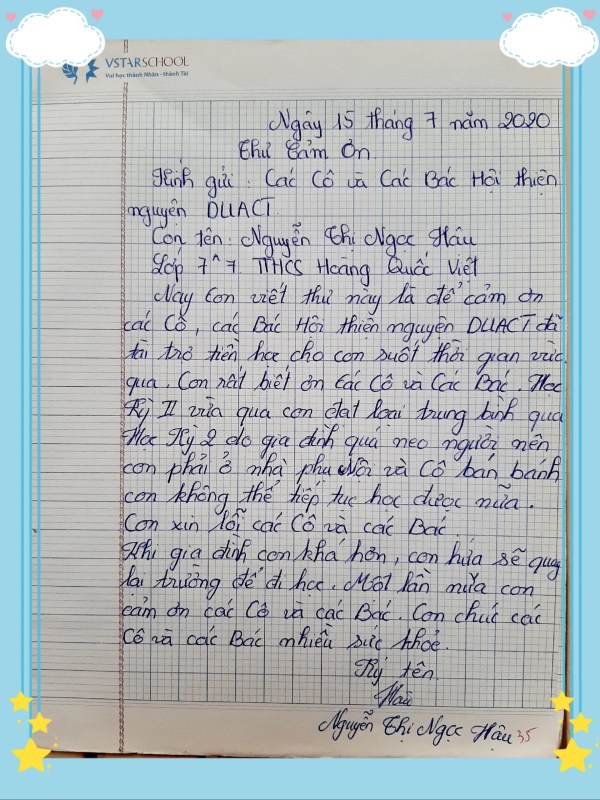 VSTARSCHOOL
Vui học thành Nhân - thành Tài
Ngày 15 tháng 7 năm 2020
Thư Cảm Ơn.
Kính gửi : Các Cô và Các Bác Hội thiện
nguyện DUACT.
Con tên : Nguyễn Thị Ngọc Hậu
Lớp 7^7. THCS Hoàng Quốc Việt
Nay Con viết thư này là để cảm ơn
các Cô, các Bác Hội thiện nguyện DUACT đã
tài trợ tiền học cho con suốt thời gian vừa
qua. Con rất biết ơn Các Cô và Các Bác. Học
Kỳ II vừa qua con đạt loại trung bình qua
Học Kỳ 2 do gia đình quá neo người nên
con phải ở nhà phụ Nội và Cô bán bánh
con không thể tiếp tục học được nữa.
Con xin lỗi các Cô và các Bác
Khi gia đình con khá hơn, con hứa sẽ quay
lại trường để đi học. Một lần nữa con
cảm ơn các Cô và các Bác. Con chúc các
Cô và các Bác nhiều sức khoẻ.
Ký tên.
Hậu
Nguyễn Thị Ngọc Hậu 35